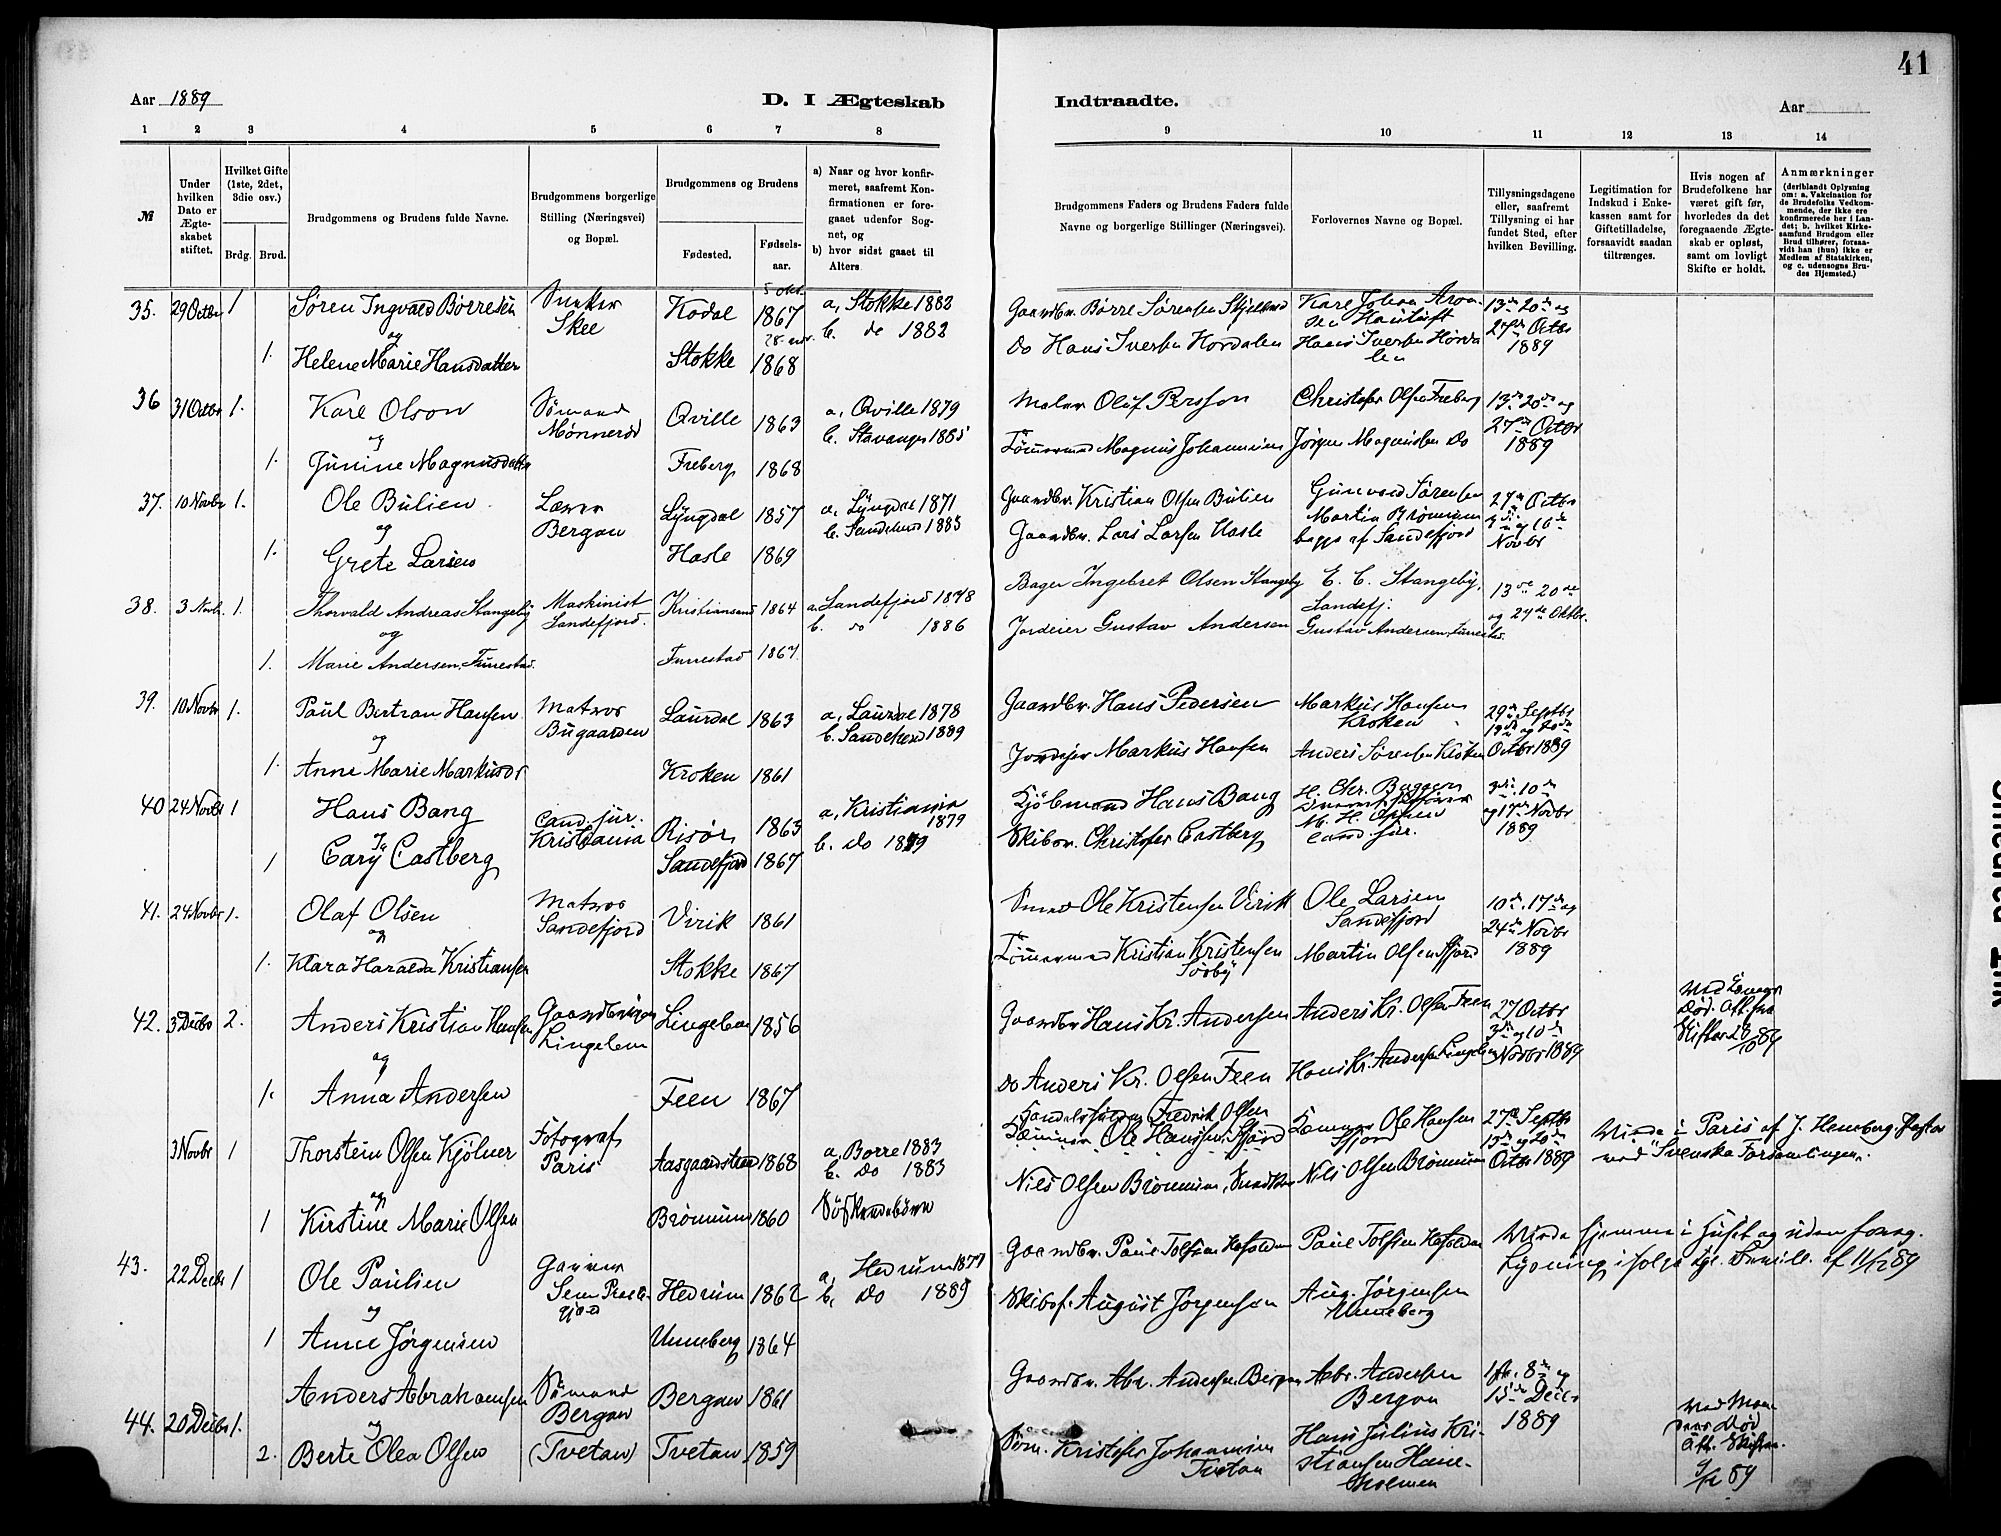 41
Aar 1889
D. I Ægteskab
Indtraadte.
Aar
1 2 3 4 5 6 7 8 9 10 11 12 13 14
№
Under hvilken Dato er Ægteskabet stiftet.
Hvilket Gifte (1ste, 2det, 3die osv.)
Brdg. Brud.
Brudgommens og Brudens fulde Navne.
Brudgommens borgerlige Stilling (Næringsvei) og Bopæl.
Brudgommens og Brudens
Fødested.
Fødselsaar.
a) Naar og hvor konfirmeret, saafremt Konfirmationen er foregaaet udenfor Sognet, og
b) hvor sidst gaaet til Alters.
Brudgommens Faders og Brudens Faders fulde Navne og borgerlige Stillinger (Næringsvei).
Forlovernes Navne og Bopæl.
Tillysningsdagene eller, saafremt Tillysning ei har fundet Sted, efter hvilken Bevilling.
Legitimation for Indskud i Enkekassen samt for Giftetilladelse, forsaavidt saadan tiltrænges.
Hvis nogen af Brudefolkene har været gift før, hvorledes da det foregaaende Ægteskab er opløst, samt om lovligt Skifte er holdt.
Anmærkninger
(deriblandt Oplysning om: a. Vakcination for de Brudefolks Vedkommende, der ikke ere konfirmerede her i Landet; b. hvilket Kirkesamfund Brudgom eller Brud tilhører, forsaavidt han (hun) ikke er Medlem af Statskirken, og c. udensogns Brudes Hjemsted.)
35. 29 Octbr 1 Søren Ingvald Børresen
Snekker Skee
Kodal 5 okt. 1867
a, Stokke 1882
b. do 1882
Gaardbr. Børre Sørensen
13de 20de og 27de Octbr 1889
og
1. Helene Marie Hansdatter
Stokke 1868
Do Hans Iversen Hordalen
Hans Iversen Hordalen
36 31 Octbr 1. Karl Olson
Sømand Mønnerød
Qville 1863
a, Qville 1879
b. Stavanger 1885
Maler Olof Persson
Christofer Olsen Freberg
13de 20de og 27de Octbr 1889
og
1. Junine Magnusdatter
Freberg 1868
Tømmermand Magnus Johannesen
Jørgen Magnussen Do
37. 10 Novbr 1. Ole Bulien
Lærer Bergan
Lyngdal 1857
a, Lyngdal 1871
b. Sandeherd 1885
Gaardbr. Kristian Olsen Bulien
Gunvald Sørensen
Martin Brønnum
begge af Sandefjord
27de Octbr 3die og 10de Novbr
og
1. Grete Larsen
Hasle 1869
Gaardbr. Lars Larsen Hasle
38. 3 Novb. 1. Thorvald Andreas Stangeby
Maskinist Sandefjord.
Kristiansand 1864
a. Sandefjord 1878
b. do 1886
Bager Ingebret Olsen Stangeby
E. C. Stangeby, Sandefj.
13de 20de og 27de Oktbr.
og
1. Marie Andersen, Furestad.
Furestad 1867
Jordeier Gustav Andersen
Gustav Andersen, Furestad.
39. 10 Novbr 1. Paul Bertran Hansen
Matros Bugaarden
Laurdal 1863
a, Laurdal 1878
b. Sandeherd 1889
Gaardbr. Hans Pedersen
Markus Hansen Kroken
29de Septbr 13de og 20de Octbr 1889
og
1. Anne Marie Markusdr
Kroken 1861
Jordejer Markus Hansen
Anders Sørensen
40 24 Novbr 1 Hans Bang
cand. jur. Kristiania
Risør 1863
a, Kristiania 1879
b. Do 1889
Kjøbmand Hans Bang
H. Chr. Bugge
cand. jur.
3die 10de og 17de Novbr 1889
og
1 Cary Castberg
Sandefjord 1867
Skibsr. Christofer Castberg
41. 24 Novbr 1. Olaf Olsen
Matros Sandefjord
Virik 1861
Smed Ole Kristensen Virik
Ole Larsen Sandefjord
10de, 17de og 24de Novbr 1889
og
1. Klara Haralda Kristiansen
Stokke 1867
Tømmermand Kristian Kristensen Sørby
Martin Olsen Fjord
42. 3 Decbr 2. Anders Kristian Hansen
Gaardbruger Lingelem
Lingelem 1856
Gaardbr Hans Kr. Andersen
Anders Kr. Olsen Feen
27 Octbr 3die og 10de Novbr 1889
og
1. Anna Andersen
Feen 1867
do Anders Kr. Olsen Feen
Hans Kr. Andersen Lingelem
3 Novbr 1 Thorstein Olsen Kjølner
Fotograf Paris
Aasgaardstrand 1868
a, Borre 1883
b. Do 1883
Søskendebørn
Handelsfuldm. Fredrik Olsen
Ole Hansen Fjord
27de Septbr 13de og 20de Octbr 1889
Viede i Paris af J. Henneberg, Pastor
ved "Svenska Församlingen".
og
1 Kirstine Marie Olsen
Brønnum 1860
Nils Olsen Brønnum, Snedker
Nils Olsen Brønnum
43. 22 Decbr 1 Ole Paulsen
Garver
Hedrum 1862
a, Hedrum 1877
b, Do 1889
Gaardbr. Paul Tolfsen
Paul Tolfsen
Viede hjemme i Huset og uden foreg.
Lysning ifølge kgl. Bevill. af 11/12 89
og
1 Anne Jørgensen
Unneberg 1864
Skibsf. August Jørgensen
Aug. Jørgensen Unneberg
44. 20 Decbr 1. Anders Abrahamsen
Sømand Bergan (Tvetan)
Bergan 1861
Gaardbr. Abr. Andersen Bergan
Abr. Andersen Bergan
1ste, 8de og 15de Decbr 1889
og
2. Berte Olea Olsen
Tvetan 1859
Søm. Kristofer Johannesen Tvetan
Hans Julius Kristiansen